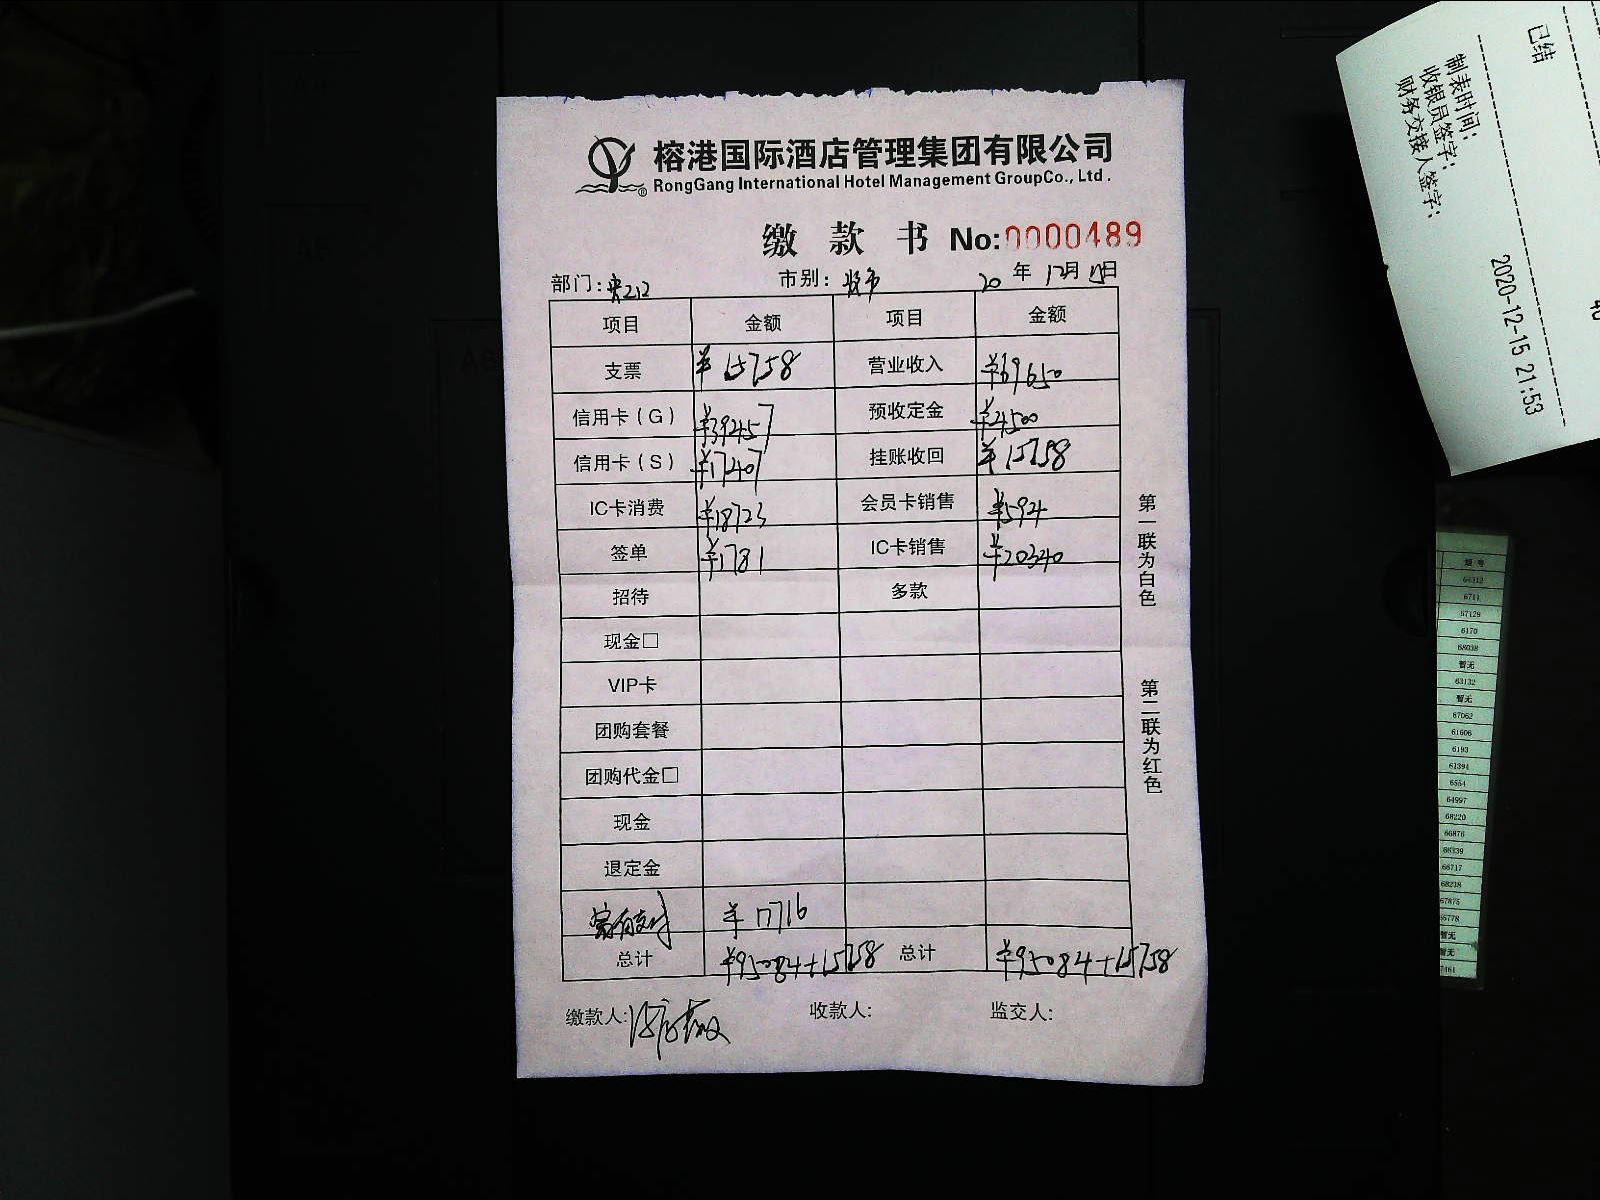 榕港国际酒店管理集团有限公司
RongGang International Hotel Management GroupCo., Ltd.
缴款书 No:0000489
部门: 市别: 20年12月15日
项目 金额 项目 金额
支票 ¥15758 营业收入 ¥69650
信用卡(G) ¥39457 预收定金 ¥4500
信用卡(S) ¥17407 挂账收回 ¥15758
IC卡消费 ¥18723 会员卡销售 ¥594
签单 ¥1781 IC卡销售 ¥20340
招待 多款
现金□
VIP卡
团购套餐
团购代金□
现金
退定金
¥17716
总计 ¥95084+15758 总计 ¥95084+15758
缴款人: 收款人: 监交人:
第一联为白色
第二联为红色
已结
制表时间: 2020-12-15 21:53
收银员签字:
财务交接人签字:
短号
66312
6711
57129
6170
68038
暂无
63132
暂无
67062
61606
6193
61394
6554
64997
68220
66876
66339
66717
68218
67875
65778
暂无
暂无
7461